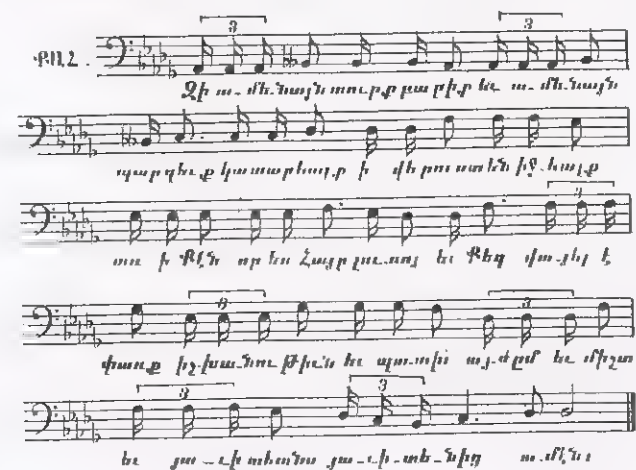 ՔԱՀ.
3 3
Զի ա-մենայն տուրք բարիք եւ ա-մենայն
պարգեւ-ք կատարեալ-ք ի վերուստ են իջ-եալք
3
առ ի Քէն որ ես Հայր լու-սոյ եւ Քեզ վա-յել է
6 3
փառք իշ-խա-նու-թիւն եւ պա-տիւ այ-ժըմ եւ միշտ
3 3
եւ յա-ւի-տեանս յա-ւի-տե-նից ա-մէն։